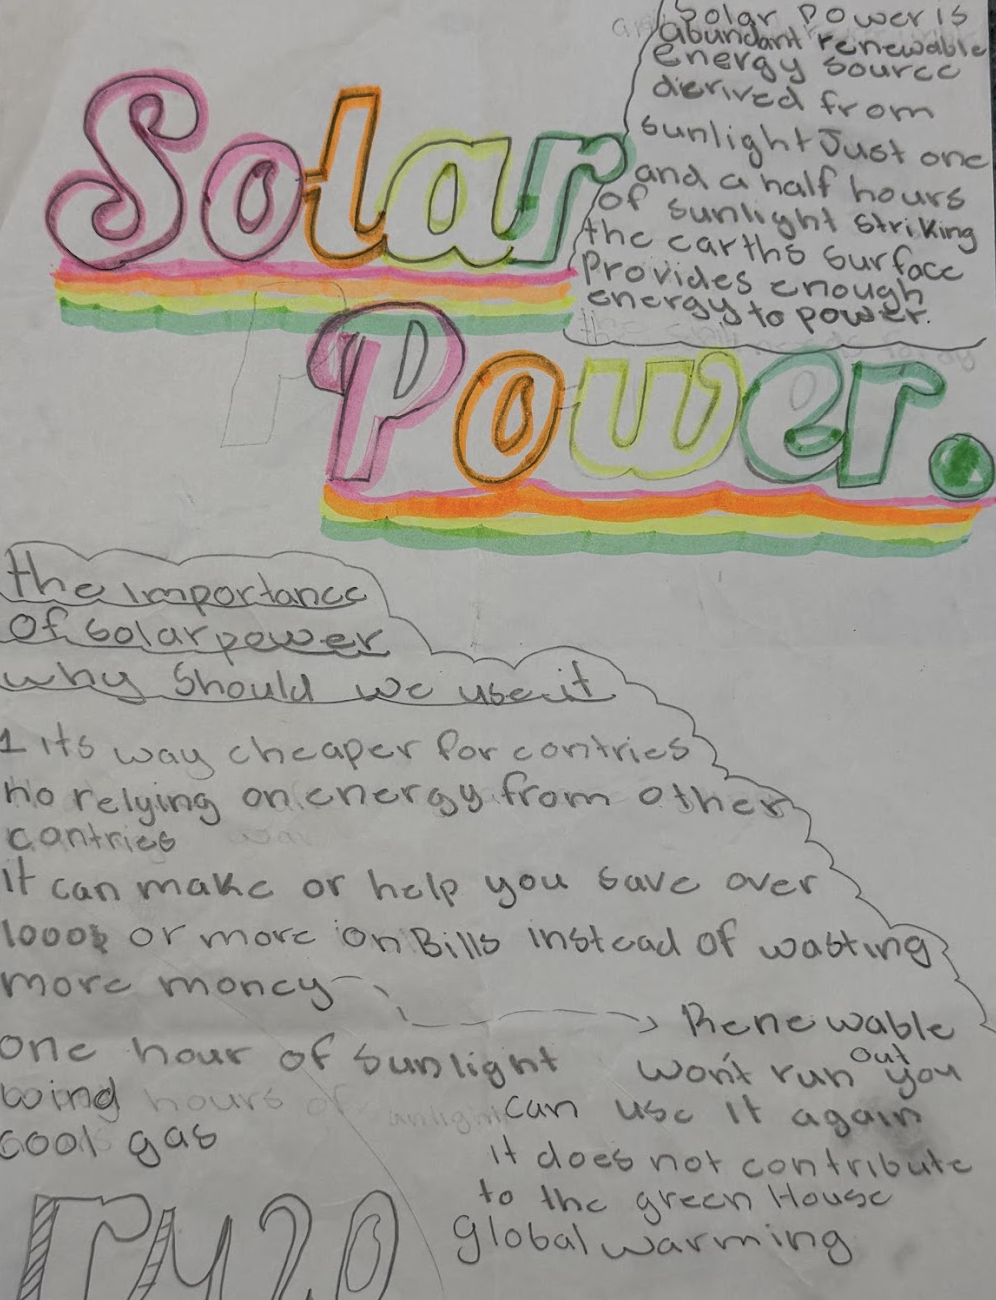 Solar
Power.
Solar Power is
abundant renewable
energy source
derived from
sunlight Just one
and a half hours
of sunlight striking
the earths surface
Provides enough
energy to power.
the importance
of solar power
why should we use it
1 its way cheaper for contries
no relying on energy from other
cantries
it can make or help you save over
1000$ or more on Bills instead of wasting
more money
one hour of sunlight
wind hours of
cool gas
Renewable
won't run out you
can use it again
it does not contribute
to the green House
global warming